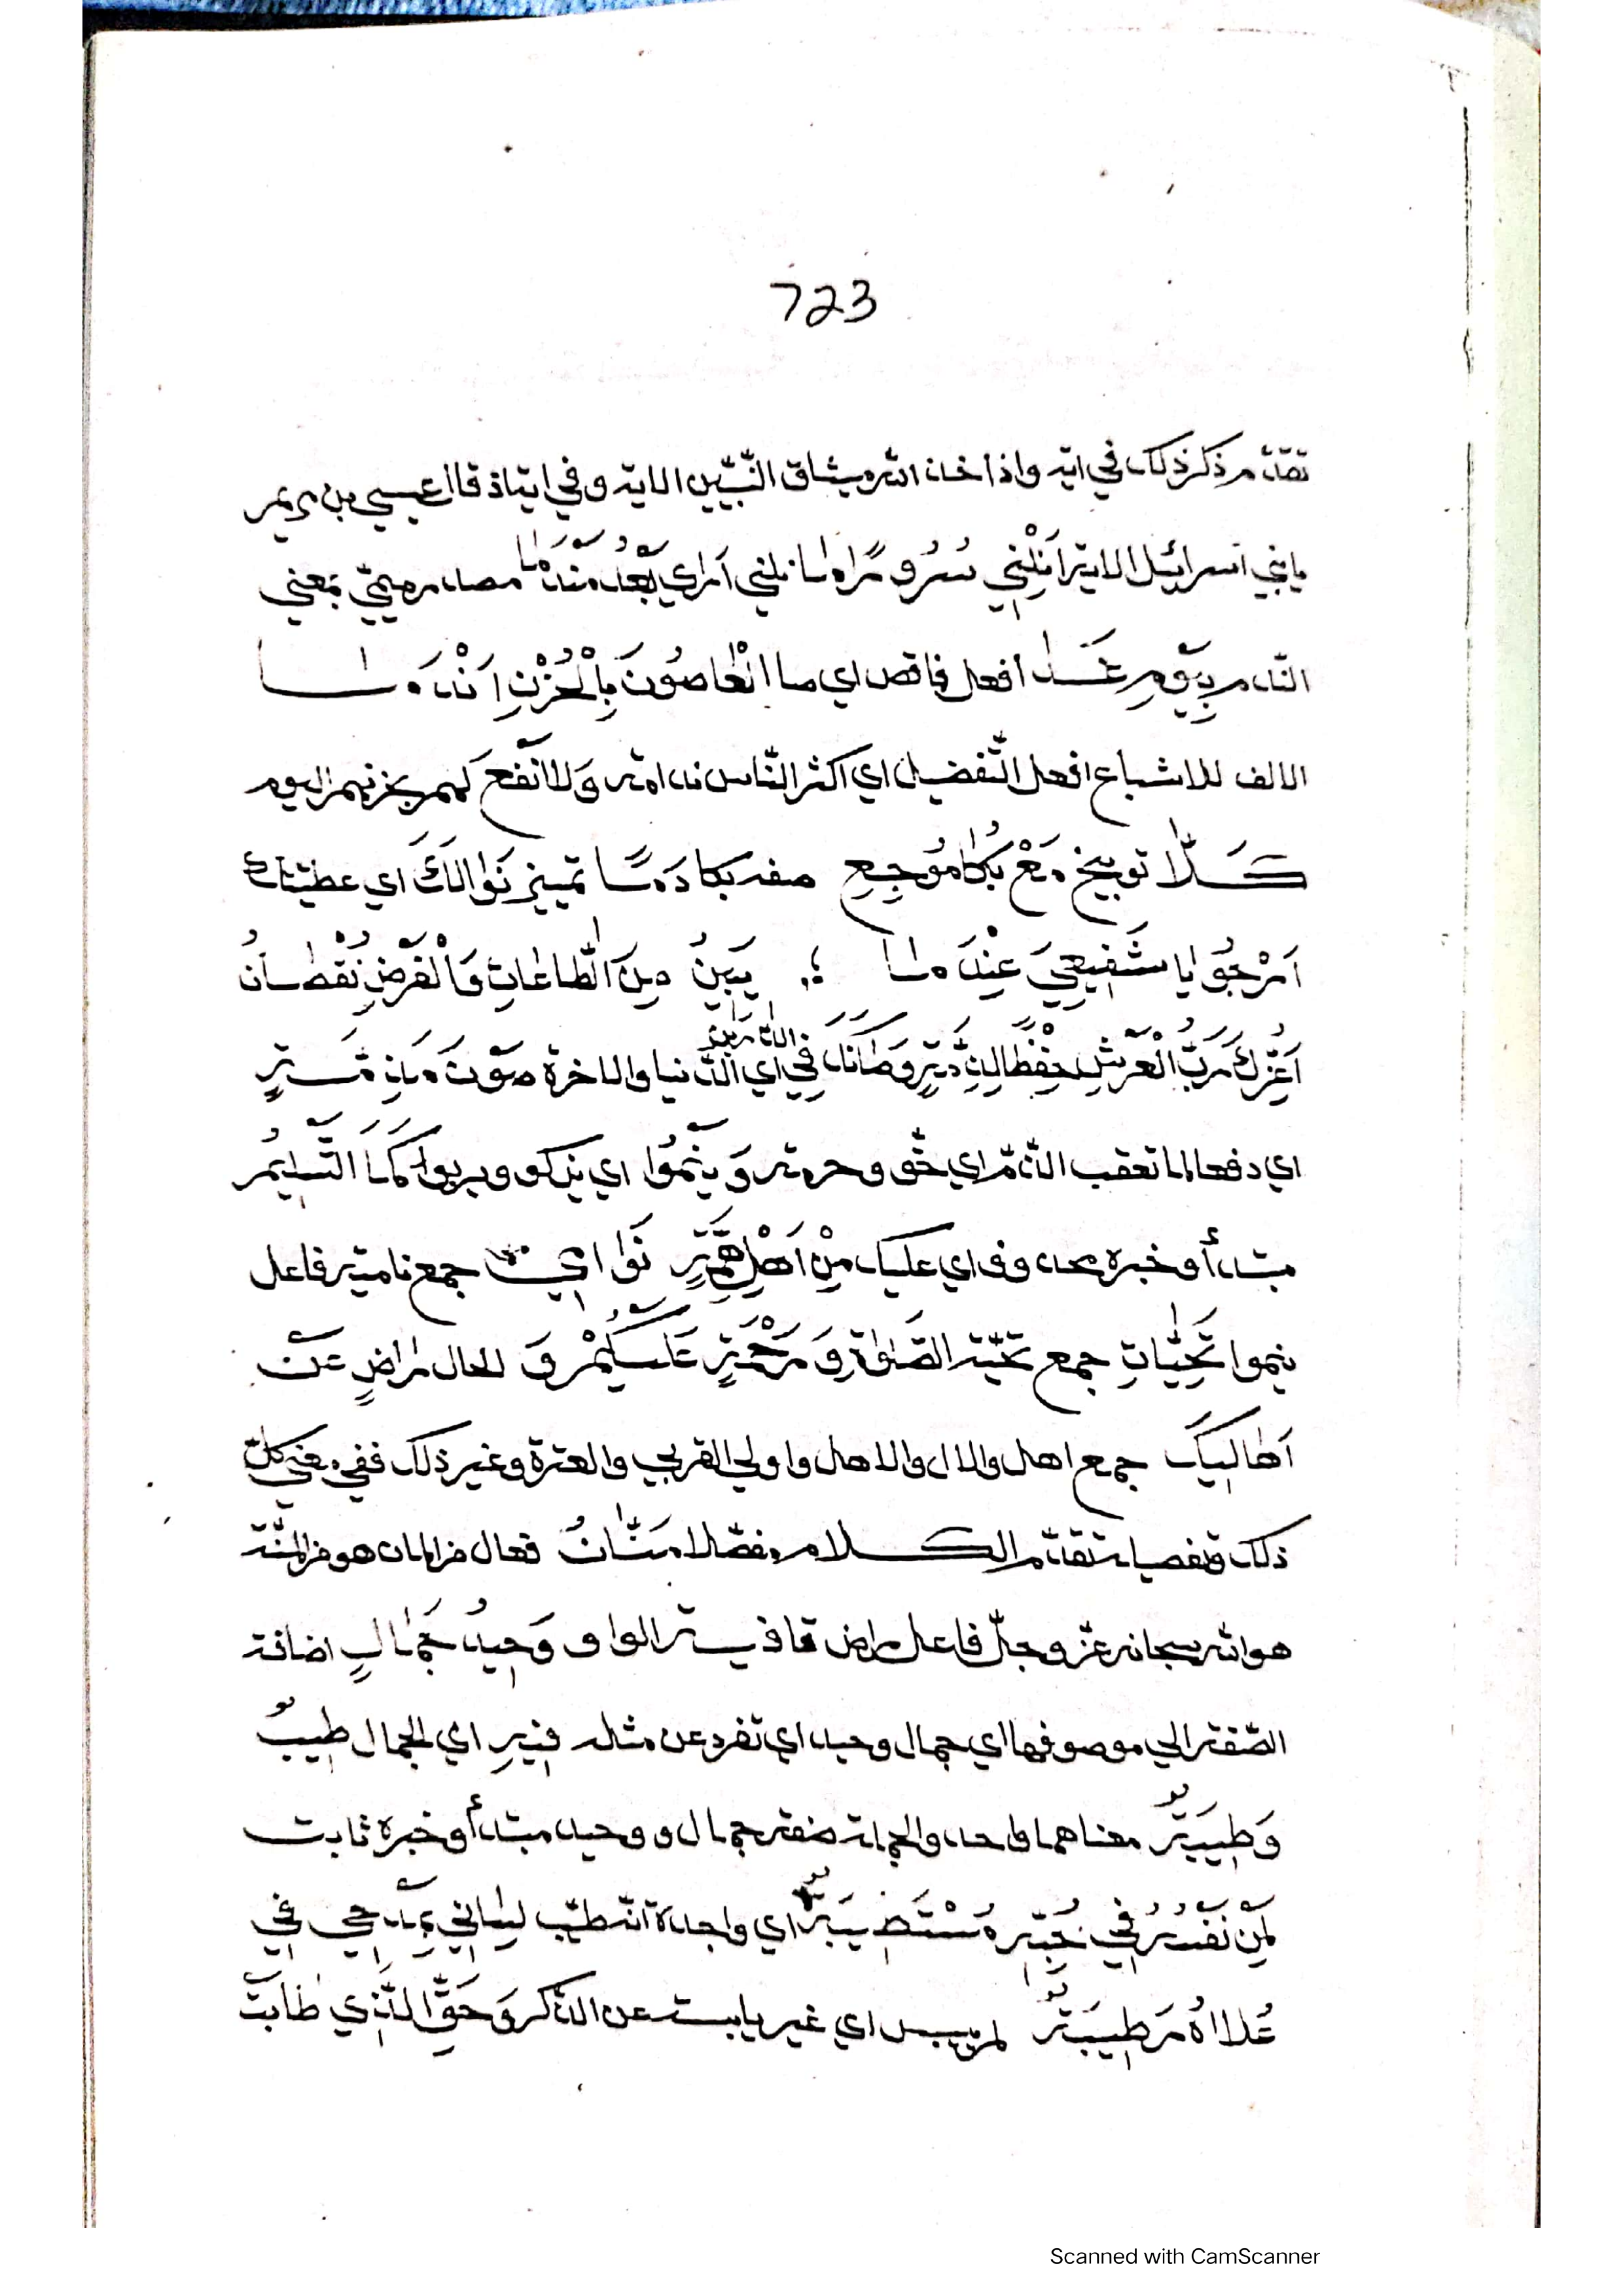 723
تقدّم ذكر ذلك في اية واذ اخذ الله ميثاق النّبيّين الاية وفي اية اذ قال عيسي بن مريم
يا بني اسرائيل الاية اَنِلْنِي سُرُورًا انلني اراي بَعْدُ مَنْدَمًا مصدر ميميّ بمعني
النّدم بِيَوْمٍ غَدَا أفعل ناقص اي صار الْعَاصُونَ بِالْحُزْنِ اَنْدَمَا
الالف للاشباع افعل التّفضيل اي اكثر النّاس ندامة وَلا نفع لهم بحزنهم اليوم
كَلَّا توبيخ مَعْ بُكَا مُوجِعٍ صفة بكا دَمًا تمييز نَوَالَكَ اي عطيّتك
اَرْجُو يَا شَفِيعِيَ عِنْدَمَا ؛ يَبِينُ مِنَ الطَّاعَاتِ وَالْفَرْضِ نُقْصَانُ
اَعِرْكَ رَبُّ الْعَرْشِ حِفْظًا لِذِمَّةٍ وَصَانَكَ فِي الدَّارَيْنِ اي الدّنيا والاخرة صَوْنَ مَذَمَّةٍ
اي دفعا لما تعقب الذّمّ اي حقّ وحرمة وَيَنْمُوا اي يزكو ويربوا كَمَا التَّسْلِيمُ
مبتدأ وخبره محذوف اي عليك مِنْ اَهْلِ هِمَّةٍ نَوَامِي جمع نامية فاعل
ينموا تَحِيَّاتٍ جمع تحيّة الصَّلوٰةِ وَرَحْمَةٍ عَلَيْكُمْ وَ للحال رَاضٍ عَنْ
اَهَالِيكَ جمع اهل والال والاهل واولي القربي والعترة وغير ذلك ففي معني كلّ
ذلك وتفصيله تقدّم الكلام مفصّلا مَنَّانُ فعال من المان هو من المنّة
هو الله سبحانه عزّ وجلّ فاعل راض قافية الواو وَحِيدُ جَمَالٍ اضافة
الصّفة الي موصوفها اي جمال وحيد اي تفرد عن مثله فِيهِ اي الجمال طِيبٌ
وَطِيبَةٌ معناهما واحد والجملة صفة جمال و وحيد مبتدأ وخبره ثابت
لِمَنْ نَفْسُهُ فِي حُبِّهِ مُسْتَطِيبَةٌ اي واجدة انّه طيّب لِسَانِي بِمَدْحِي فِي
عُلَاهُ رَطِيبَةٌ لم ييبس اي غير يابسة عن الذّكر وَحَقِّ الَّذِي طَابَتْ
Scanned with CamScanner